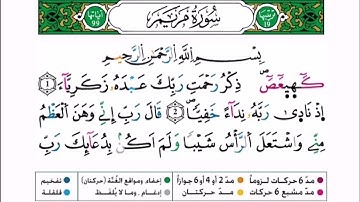 سُورَةُ مَرْيَمَ
بِسْمِ اللَّهِ الرَّحْمَٰنِ الرَّحِيمِ
كٓهيعٓصٓ ١ ذِكْرُ رَحْمَتِ رَبِّكَ عَبْدَهُۥ زَكَرِيَّآءَ
إِذْ نَادَىٰ رَبَّهُۥ نِدَآءً خَفِيًّا ٢ قَالَ رَبِّ إِنِّى وَهَنَ ٱلْعَظْمُ
مِنِّى وَٱشْتَعَلَ ٱلرَّأْسُ شَيْبًا وَلَمْ أَكُنۢ بِدُعَآئِكَ رَبِّ
مدّ 6 حركات لزوماً مدّ 2 أو 4 أو 6 جوازاً إخفاء، ومواقع الغُنَّة (حركتان) تفخيم
مدّ مشبع 6 حركات مدّ حركتان إدغام، وما لا يُلفظ قلقلة